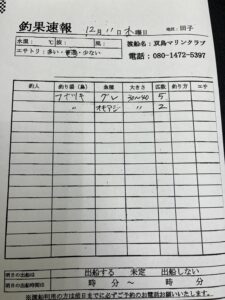 釣果速報 12月11日木曜日 地区:田子
水温: ℃ 波: 風:
エサトリ:多い・普通・少ない
渡船名:双島マリンクラブ
電話:080-1472-5397
釣人 釣り場(島) 魚種 大きさ 匹数 釣り方 エサ
グレ 30〜40 5
〃 オキアジ 〃 2
明日の出船は 出船する 未定 出船しない
明日の出船時間は 時 分 〜 時 分
※渡船利用の方は前日までに必ずご予約のお電話お願いいたします。